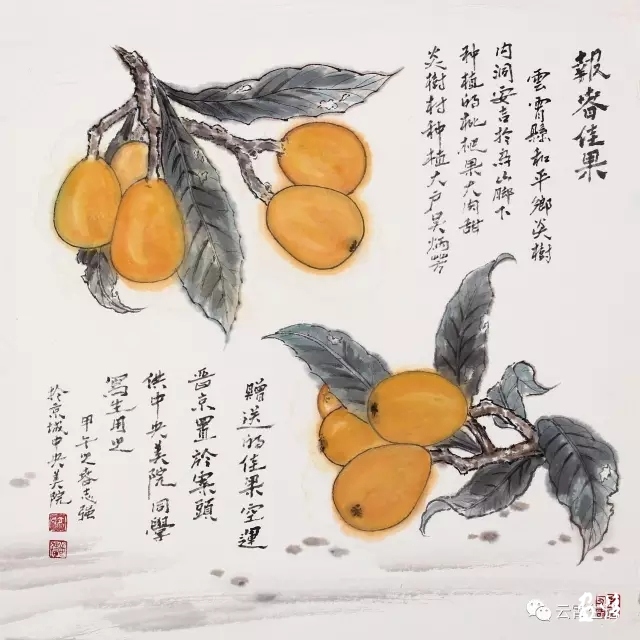 報春佳果
雲霄縣和平鄉炎樹
内洞安吉於山脚下
种植的枇杷果大肉甜
炎樹村种植大户吴炳
贈送的佳果空運
晋京置於案頭
供中央美院同學
寫生用之
甲午之春志强
於京城中央美院
云